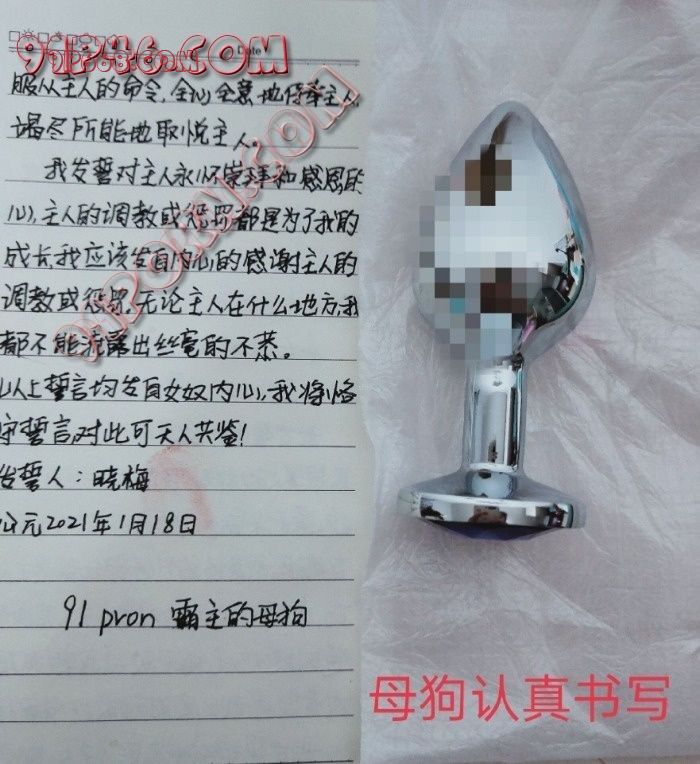 91P46.COM
Date
服从主人的命令,全心全意地侍奉主人,
竭尽所能地取悦主人。
我发誓对主人永怀崇拜和感恩的
心,主人的调教或惩罚都是为了我的
成长,我应该发自内心的感谢主人的
调教或惩罚,无论主人在什么地方,我
都不能泄露出丝毫的不恭。
以上誓言均发自女奴内心,我将恪
守誓言对此可天人共鉴!
发誓人:晓梅
公元2021年1月18日
91 pron 霸主的母狗
母狗认真书写